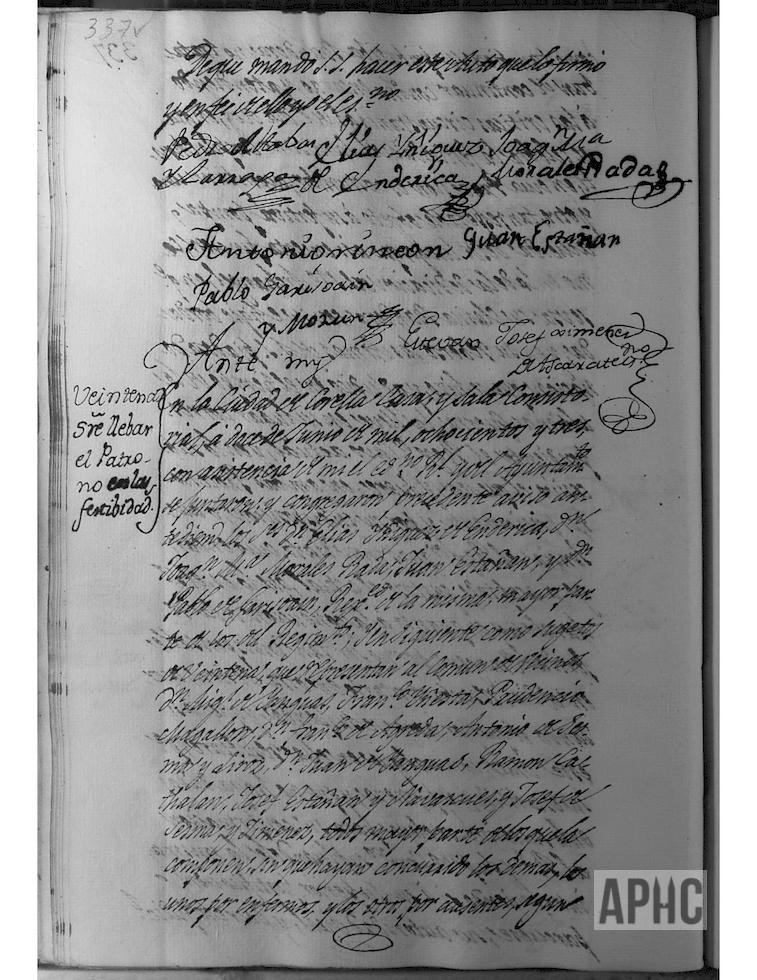 337v
De que mandó S.S. hacer este auto que lo firmó
y en fee de ello yo el es.no
Pedro Elias Yñiguez Joaq.n M.a
y Larraga de Enderica Morales Rada
Antonio rincon Juan Estañan
Pablo Garisoain
y Morun
Estevan Josef ximenez
Ante my de Ascarate s.no
Veintena
Sre llebar
el Patro-
no en las
festibidad.s
En la Ciudad de Corella Casa, y Sala Consisto
rial, á doce de Junio de mil, ochocientos y tres,
con asistencia de mi el es.no R.l y del Ayuntam.to
se juntaron, y congregaron precedente aviso an-
te diem los S.res D.n Elias Yñiguez de Enderica, D.n
Joaq.n M.a Morales Rada, Juan Estañan, y D.n
Pablo de Garisoain, Rex.es de la misma, mayor par-
te de los del Regim.to; Yen siguiente como sugetos
de Veintena, que representan al Comun de Vecinos
D.n Mig.l de Sanguas, Fran.co Virto, Prudencio
Magallon, D.n Fran.co de Agreda, Antonio de Ser-
ma, y D.n Juan de Sanguas, Ramon Ca-
thalan, Josef Estañan y Navascues, y Josef de
Sesma, y Ximenez, todos mayor parte de los que la
componen, sin que hayan concurrido los demas, los
unos por enfermos, y los otros por ausentes, segun
APHC